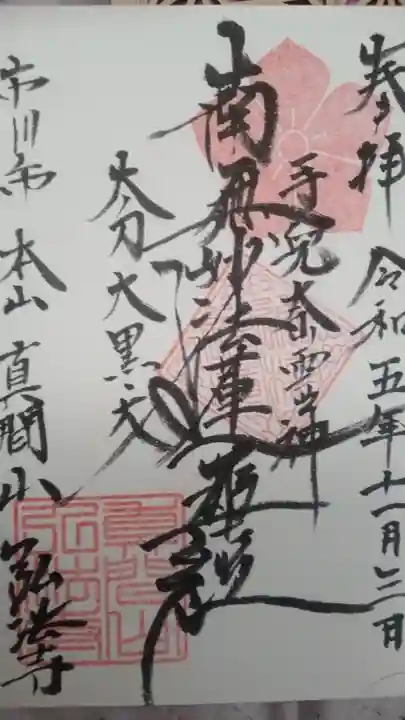 参拝 令和五年十一月三日
手児奈霊神
南無妙法蓮華経
太刀大黒天
市川市 本山 真間山 弘法寺